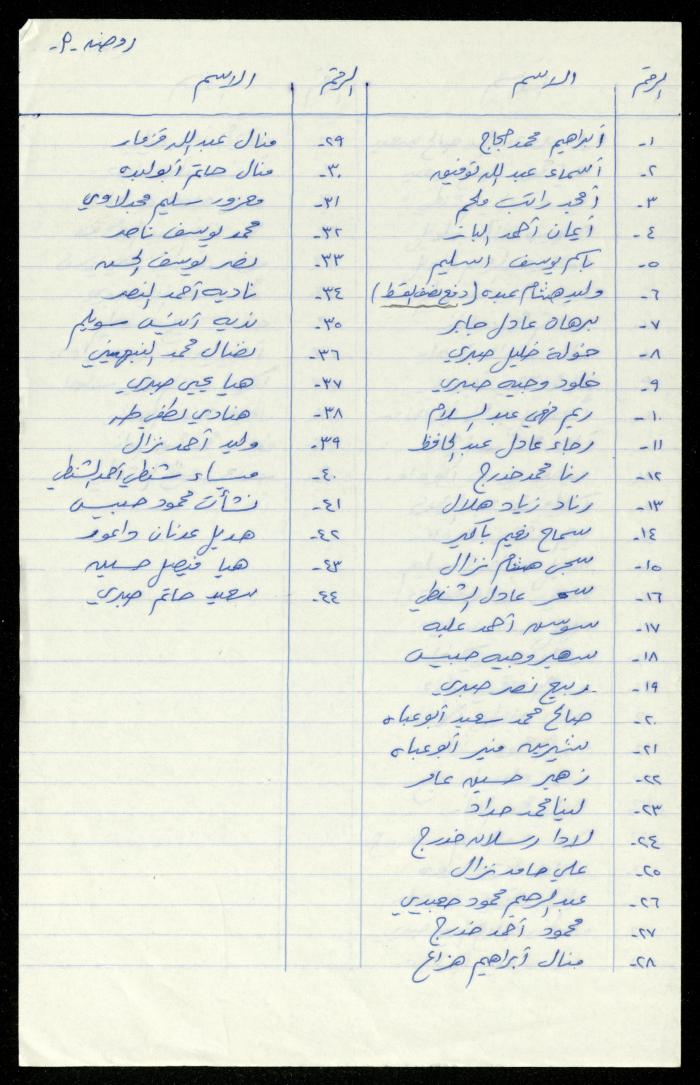 روضه - م -
الرقم الاسم
١- أبراهيم محمد حجاج
٢- أسماء عبد الله توفيق
٣- أمجد راتب ملحم
٤- أيمان أحمد الباز
٥- باسم يوسف اسليم
٦- وليد هشام عبده (دفع نصف القسط)
٧- برهان عادل جابر
٨- خولة خليل صبري
٩- خلود وجيه صبري
١٠- ريم فهمي عبد السلام
١١- رجاء عادل عبد الحافظ
١٢- رنا محمد خدرج
١٣- رناد زياد هلال
١٤- سماح نعيم باكير
١٥- سجى هشام نزال
١٦- سحر عادل الشنطي
١٧- سوسن أحمد علبه
١٨- سهير وجيه حبيس
١٩- ربيع نصر صبري
٢٠- صالح محمد سعيد أبو عباه
٢١- شيرين منير أبو عباه
٢٢- زهير حسين عامر
٢٣- لينا محمد حداد
٢٤- لادا رسلان خدرج
٢٥- علي حامد نزال
٢٦- عبد الرحيم محمود جعيدي
٢٧- محمود أحمد خدرج
٢٨- منال أبراهيم هزاع
الرقم الاسم
٢٩- منال عبد الله قزمار
٣٠- منال حاتم أبو لبده
٣١- معزوز سليم مجدلاوي
٣٢- محمد يوسف ناصر
٣٣- نصر يوسف الحسن
٣٤- ناديه أحمد النصر
٣٥- نزيه أنيس سويلم
٣٦- نضال محمد
٣٧- هيا يحيى صبري
٣٨- هنادي لطفي طه
٣٩- وليد أحمد نزال
٤٠- ميساء شنطي أحمد الشنطي
٤١- نشأت محمود حبيس
٤٢- هديل عدنان داعور
٤٣- هيا فيصل حسين
٤٤- سعيد حاتم صبري